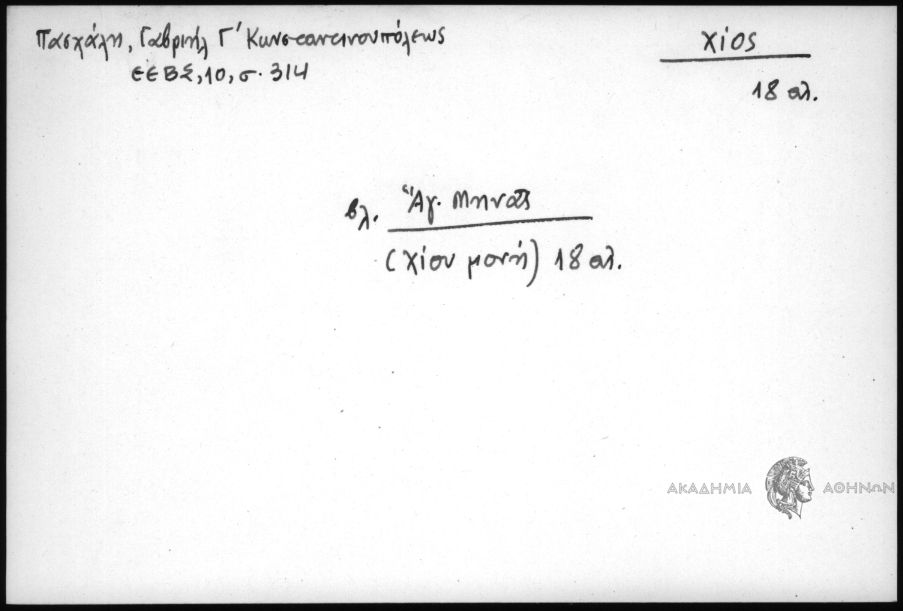 Πασχάλη, Γαβριήλ Γ΄ Κωνσταντινουπόλεως
ΕΕΒΣ, 10, σ. 314
Χίος
18 αι.
βλ. Ἁγ. Μηνᾶς
(Χίου μονή) 18 αι.
ΑΚΑΔΗΜΙΑ ΑΘΗΝΩΝ